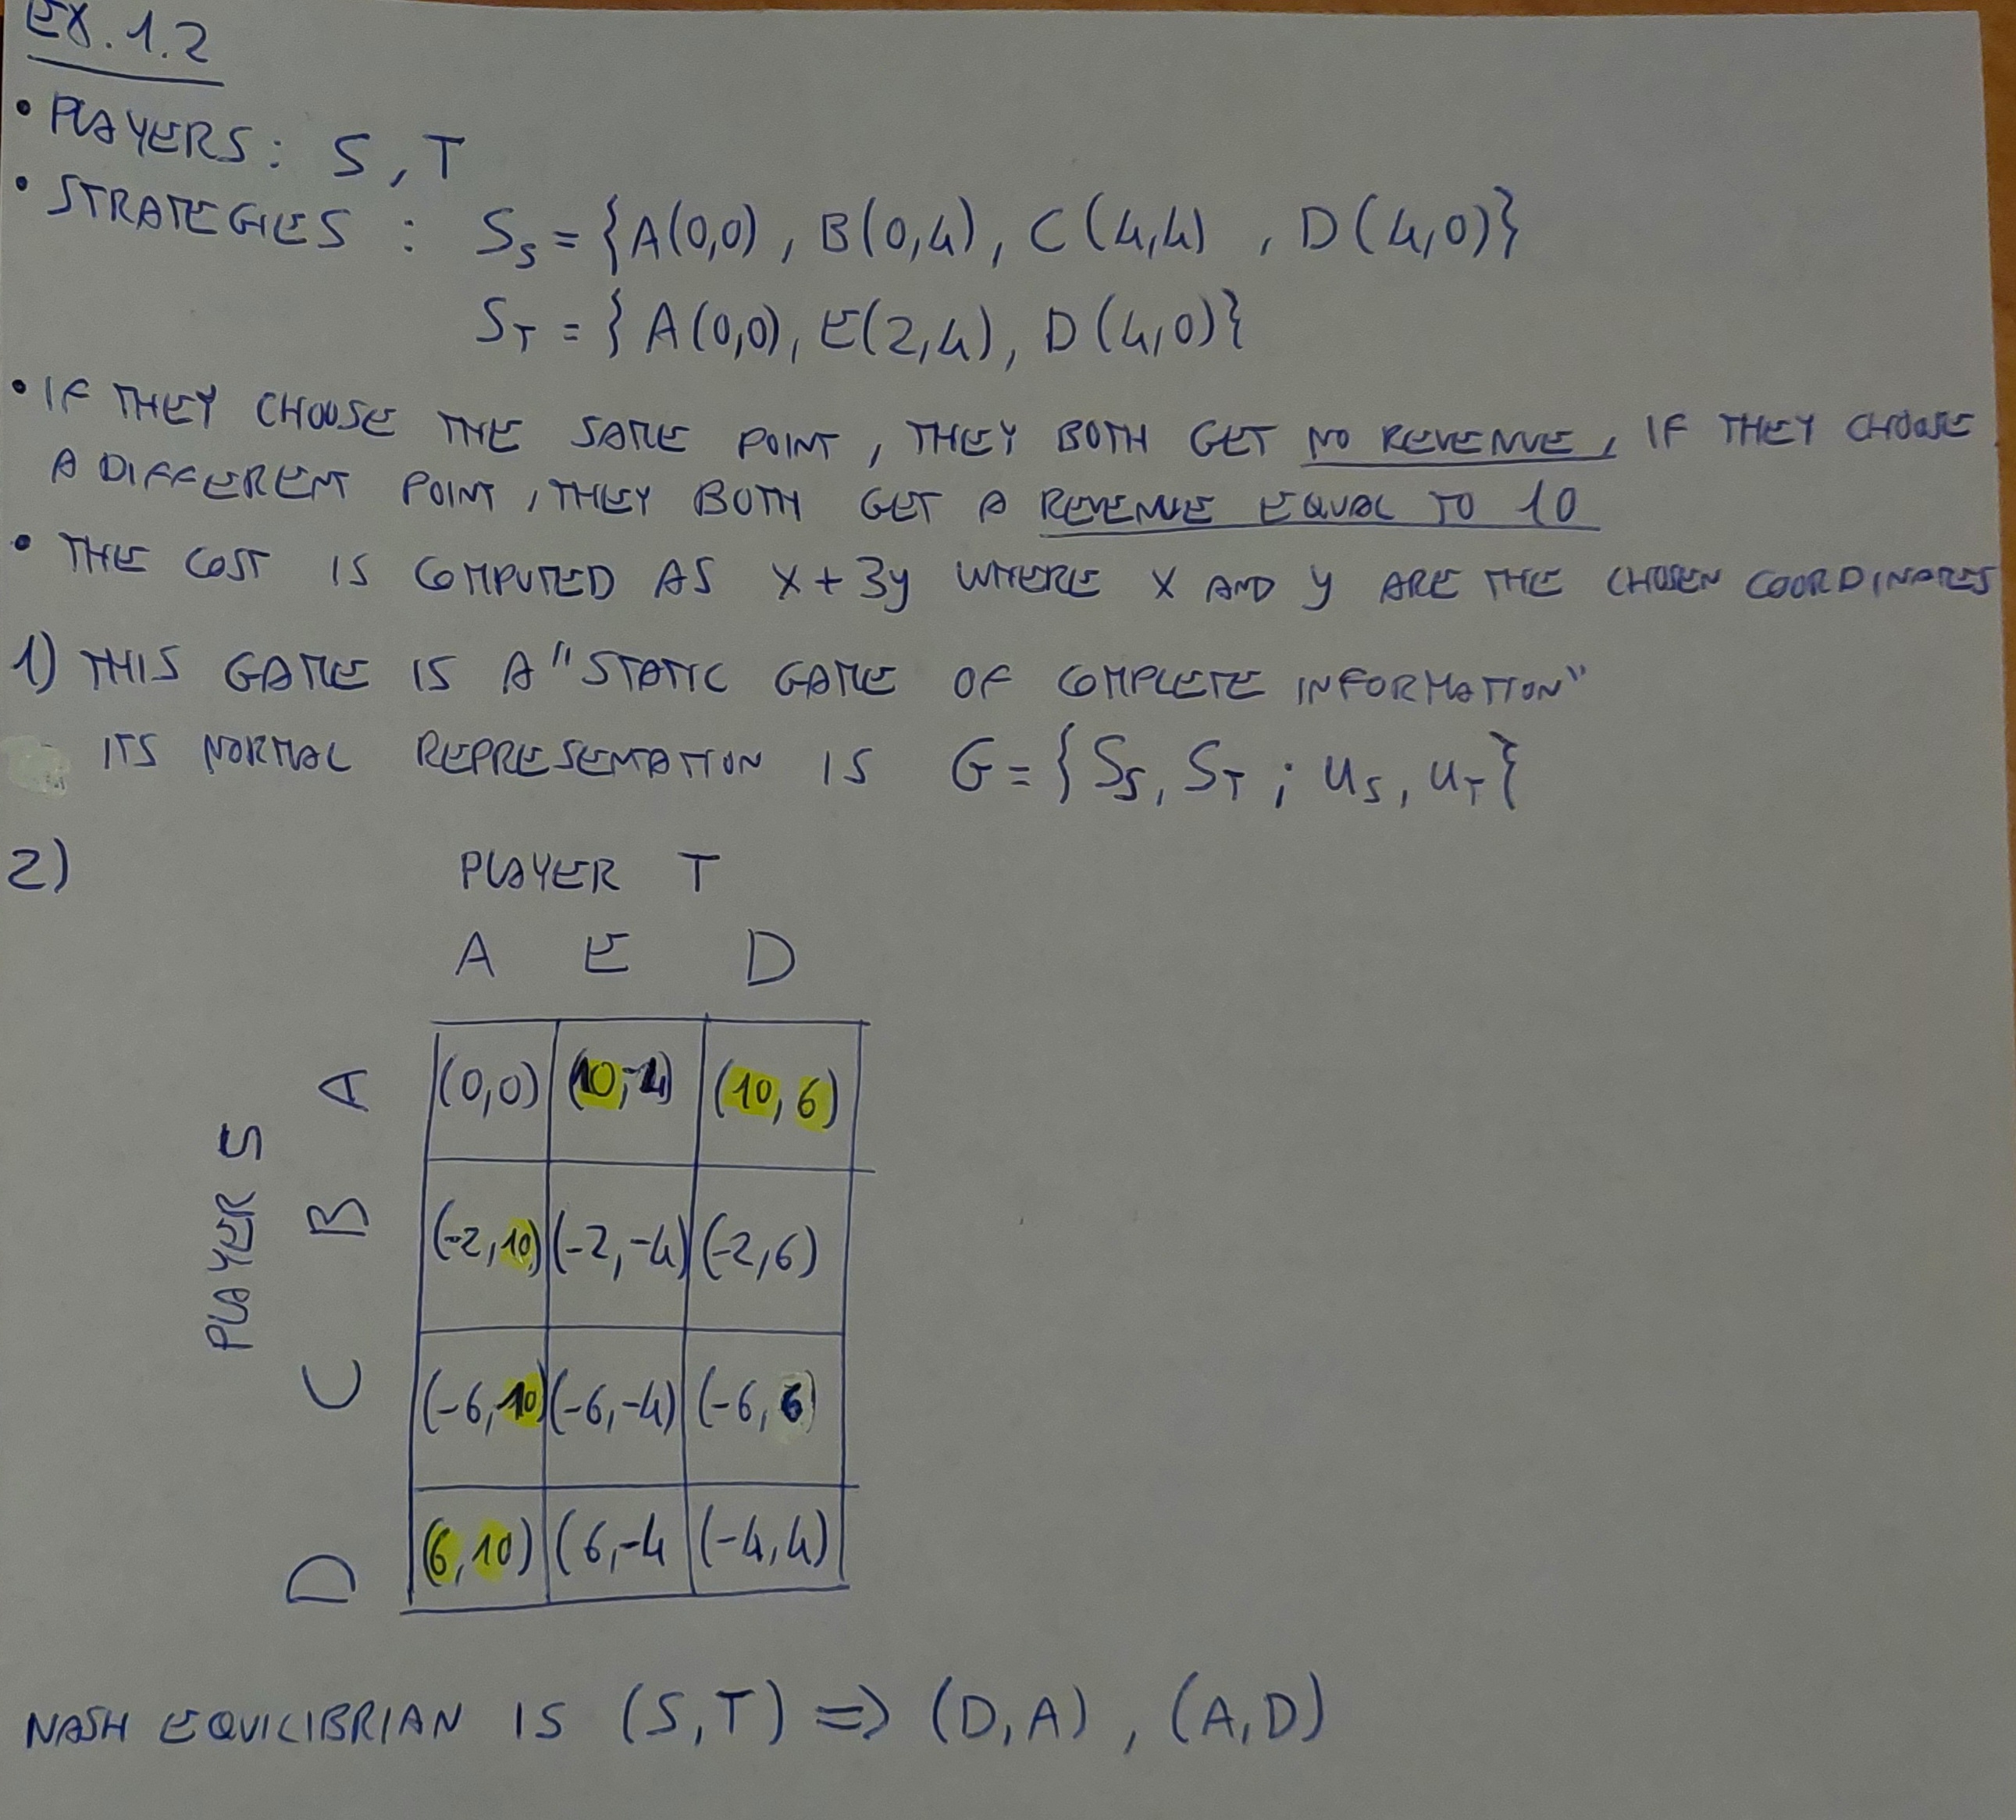 EX.1.2
• PLAYERS: S, T
• STRATEGIES : S_S = {A(0,0), B(0,4), C(4,4), D(4,0)}
S_T = {A(0,0), E(2,4), D(4,0)}
• IF THEY CHOOSE THE SAME POINT, THEY BOTH GET NO REVENUE, IF THEY CHOOSE
A DIFFERENT POINT, THEY BOTH GET A REVENUE EQUAL TO 10
• THE COST IS COMPUTED AS x+3y WHERE x AND y ARE THE CHOSEN COORDINATES
1) THIS GAME IS A "STATIC GAME OF COMPLETE INFORMATION"
ITS NORMAL REPRESENTATION IS G={S_S, S_T; u_S, u_T}
2) PLAYER T
A E D
PLAYER S
A (0,0) (10,-4) (10,6)
B (-2,10) (-2,-4) (-2,6)
C (-6,10) (-6,-4) (-6,6)
D (6,10) (6,-4 (-4,4)
NASH EQUILIBRIAN IS (S,T) => (D,A), (A,D)